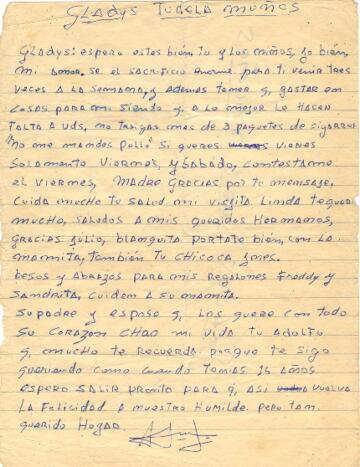 GLADYS TUDELA MUÑOS
GLADYS: espero estes bién, tu y LOS NIÑOS, yo bién,
mi amor, se el SACRIFICIO enorme para ti venir tres
veces A LA SEMANA, y Además tener q, GASTAR en
COSAS PARA mi siendo q, a lo mejor Le HACEN
FALTA A UDS, no traigas mas de 3 paquetes de cigarros
"No me mandes Pollo" Si queres vienes
SOLAMENTE Viernes, y SábADO, CONTESTAme
el Viernes, MADRE GRACIAS por tu mensaje,
Cuida mucho tu SALUD mi viejita LINDA te quiero
mucho, SALUDOS A mis queridos HERMANOS,
GRACIAS JULIO, bLANquita portate bién, con LA
mamita, TAMbién Tu CHICOCA
besos y AbrAzos PARA mis REGALONES Freddy y
SANDRITA, CUIDEN A SU mAmita.
Su padre y esposo q, LOS quere con todo
Su CORAZON CHAO mi VIDA tu ADOLFO
q, mucho te Recuerda porque te sigo
queriendo como cuando tenias 15 AÑOS
espero SALIR pronto PARA q, ASI vuelva
LA FeLICIDAD A nuestro Humilde. pero tan
querido HogAR